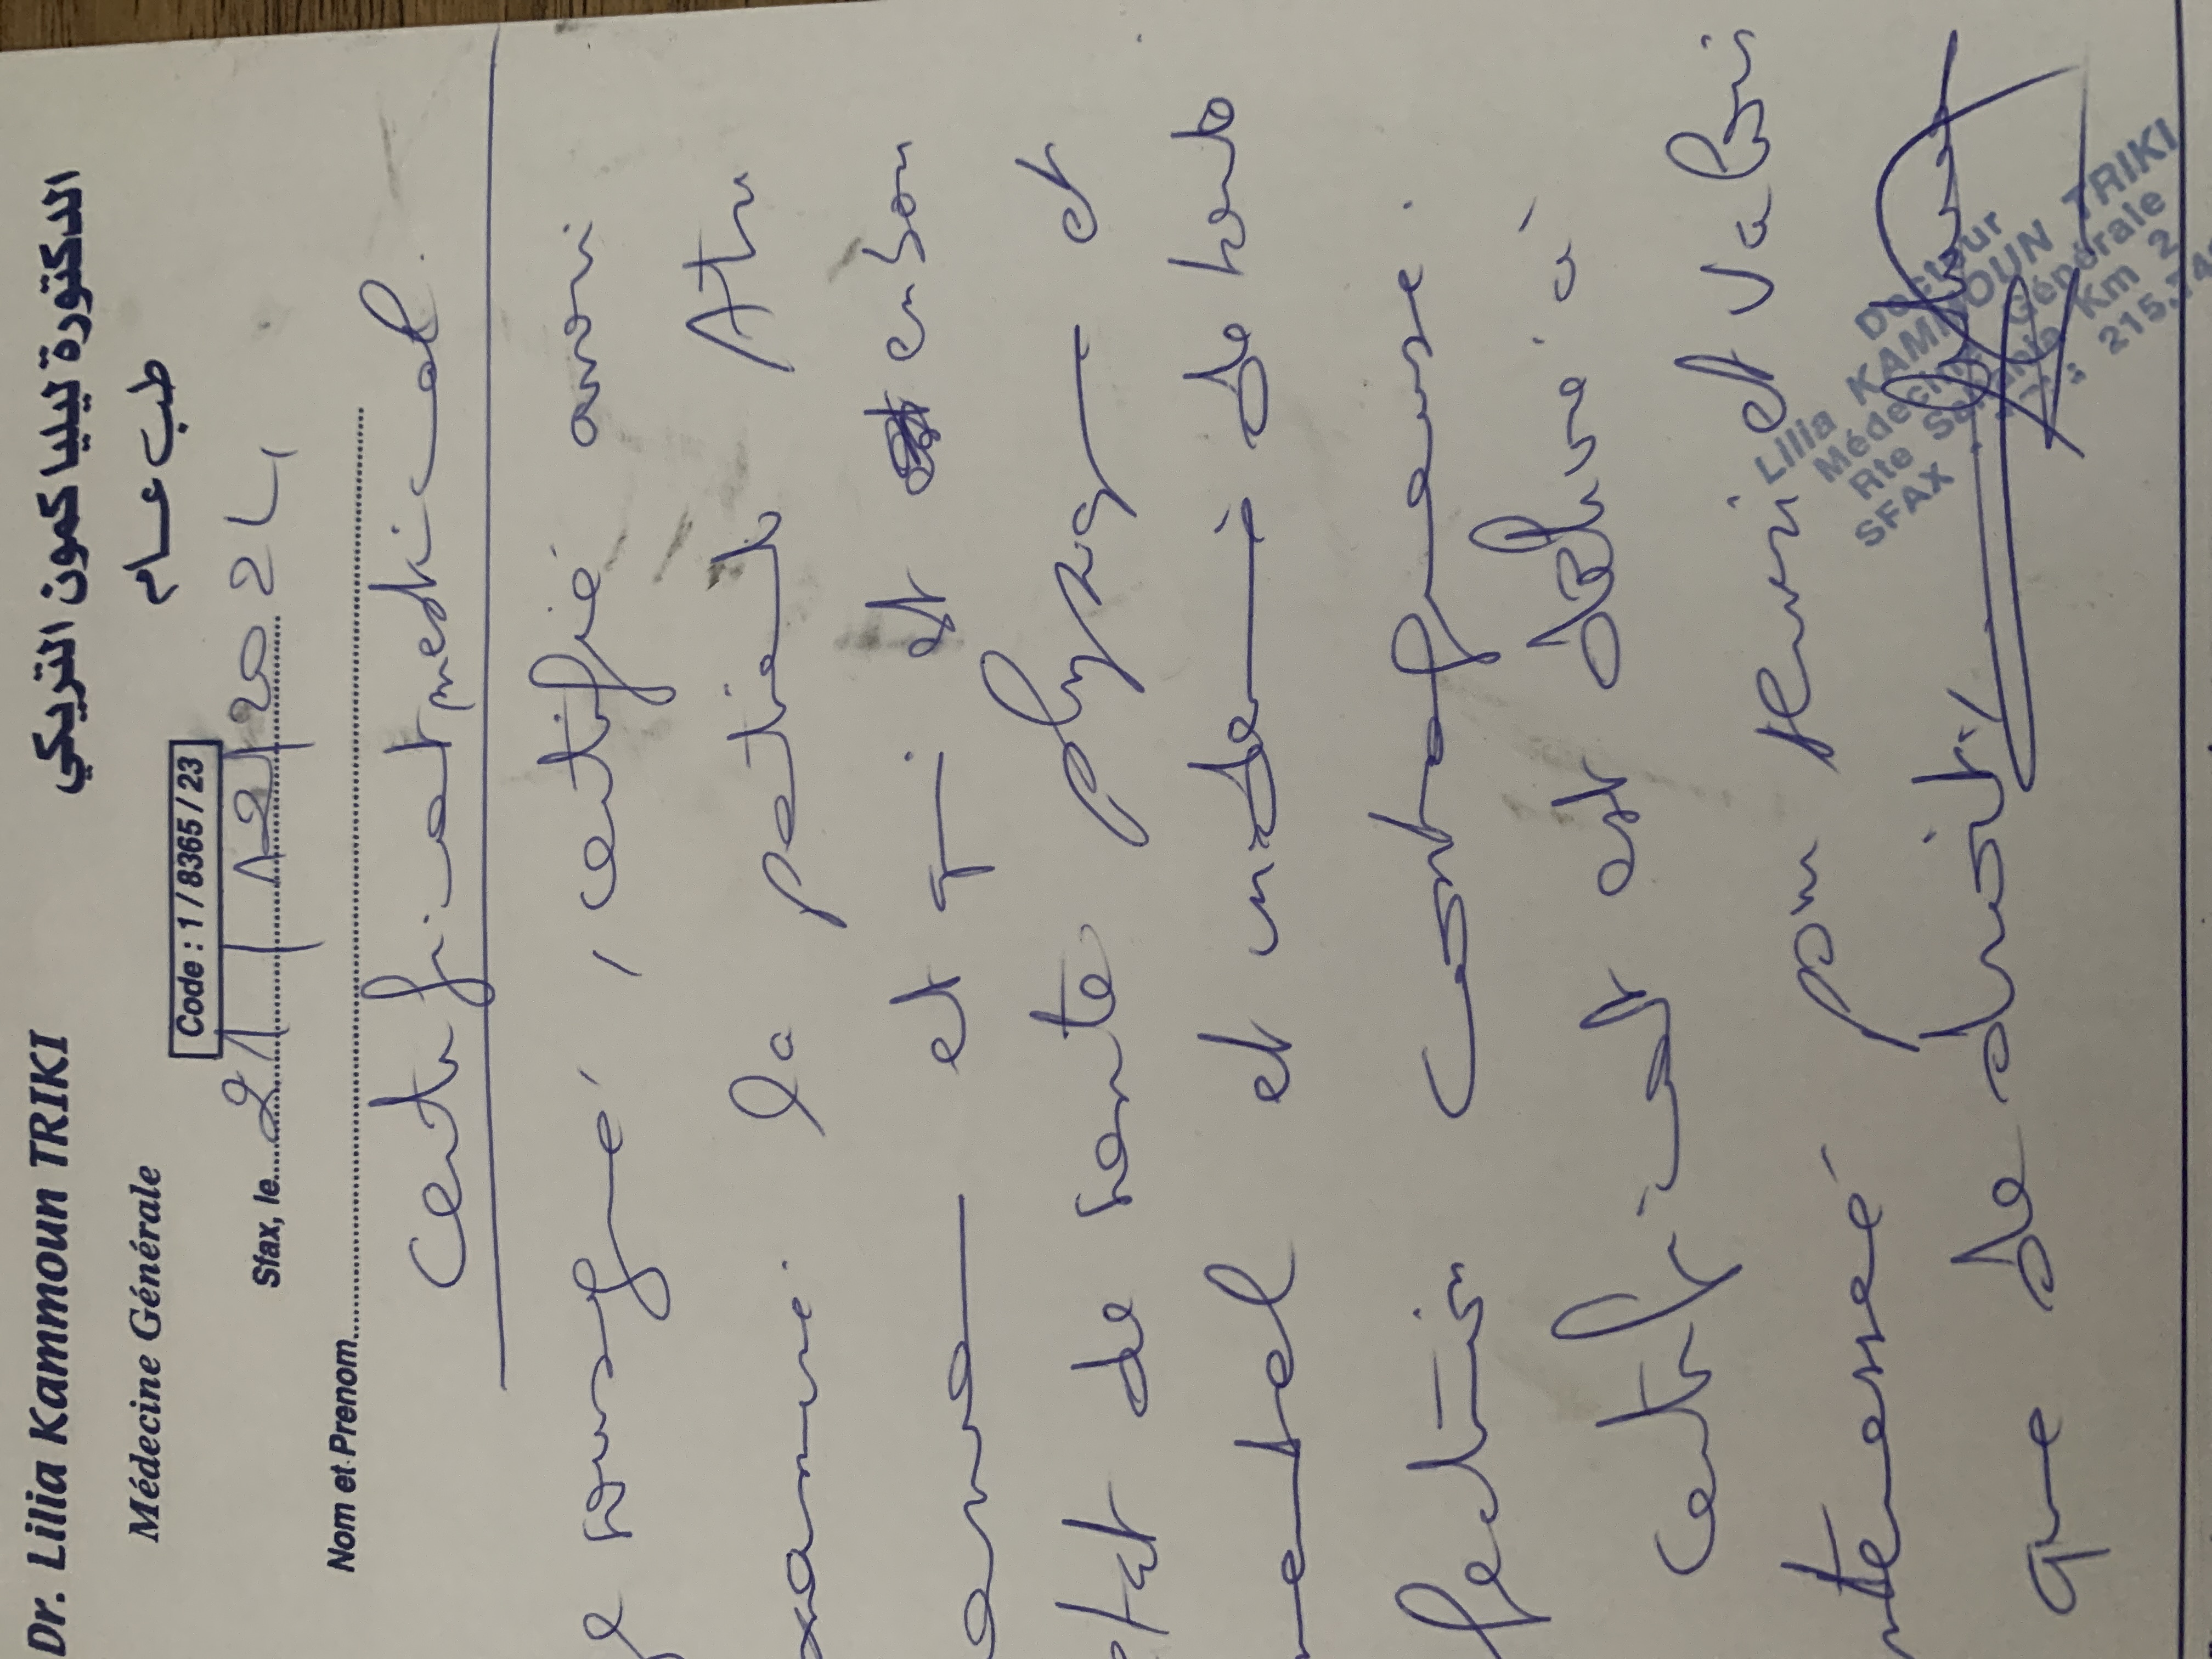 Dr. Lilia Kammoun TRIKI
الدكتورة ليليا كمون التريكي
Médecine Générale
طب عـــام
Code : 1 / 8365 / 23
Sfax, le 21 / 12 / 2024
Nom et Prenom
Certificat médical
soussigné, certifie avoir
examiné la patiente
et qui est en bon
état de santé physique et
mental et indemne de toute
infection contagieuse.
Certificat est délivré à
intéressé pour servir et valoir
que de droit.
Docteur
Lilia KAMMOUN TRIKI
Médecine Générale
Rte Km 2
SFAX